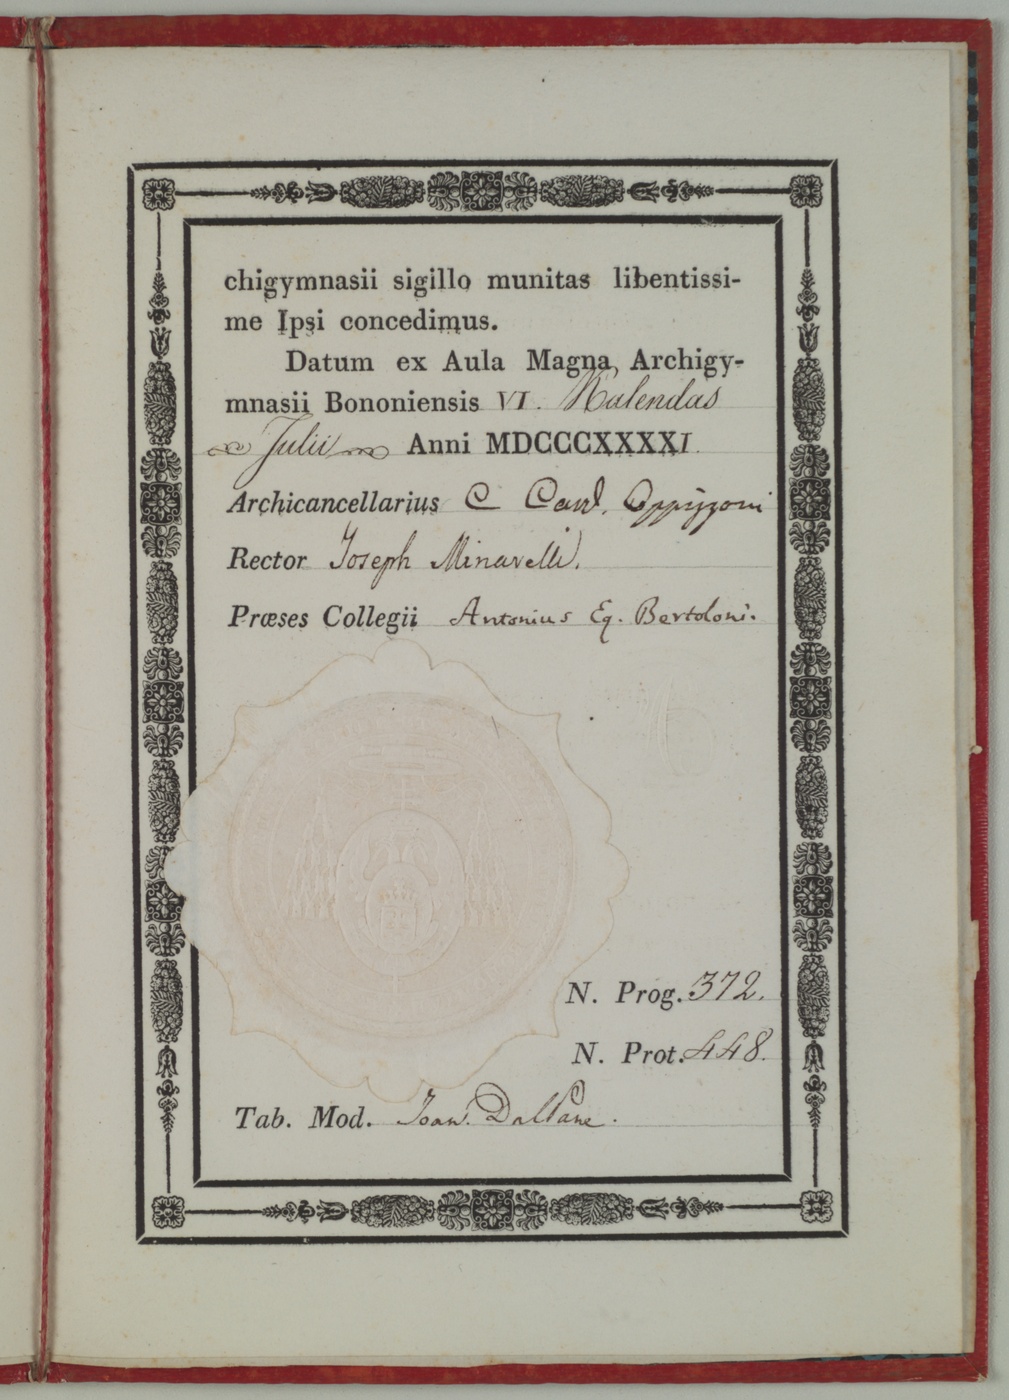 chigymnasii sigillo munitas libentissi-
me Ipsi concedimus.
Datum ex Aula Magna Archigy-
mnasii Bononiensis VI. Kalendas
Julii Anni MDCCCXXXXI.
Archicancellarius C Card. Oppizzoni
Rector Joseph Minarelli.
Præses Collegii Antonius Eq. Bertoloni.
N. Prog. 372.
N. Prot. 448.
Tab. Mod. Joan. Dallane.